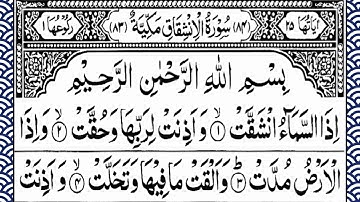 اٰیَاتُهَا ٢٥ (٨٤) سُوْرَةُ الْاِنْشِقَاقِ مَكِّیَّةٌ (٨٣) رُكُوْعُهَا ١
بِسْمِ اللّٰهِ الرَّحْمٰنِ الرَّحِیْمِ
اِذَا السَّمَآءُ انْشَقَّتْ ۙ﴿١﴾ وَ اَذِنَتْ لِرَبِّهَا وَحُقَّتْ ۙ﴿٢﴾ وَاِذَا
الْاَرْضُ مُدَّتْ ۙ﴿٣﴾ وَاَلْقَتْ مَا فِیْهَا وَتَخَلَّتْ ۙ﴿٤﴾ وَ اَذِنَتْ